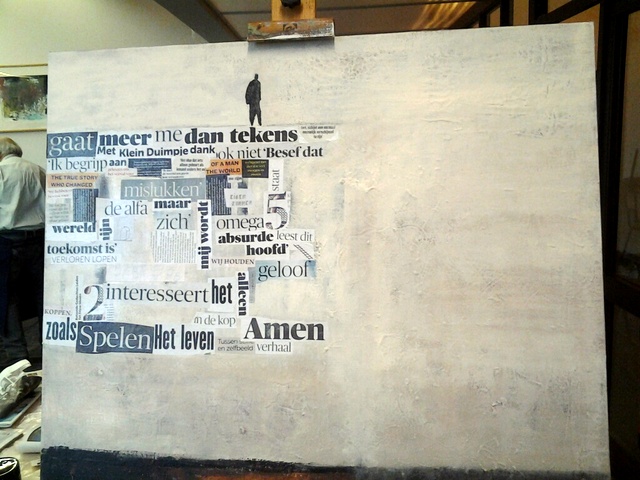 gaat meer me dan tekens
Met Klein Duimpje dank
'Ik begrijp aan ook niet 'Besef dat
OF A MAN
THE WORLD
THE TRUE STORY
WHO CHANGED
mislukken' staat
de alfa maar
zich' mij wordt omega 5
wereld zijn absurde leest dit
toekomst is' hoofd'
VERLOREN LOPEN WIJ HOUDEN
geloof
2 interesseert het alleen
KOPPEN.
in de kop
zoals Spelen Het leven Amen
Tussen
en zelfbeeld verhaal